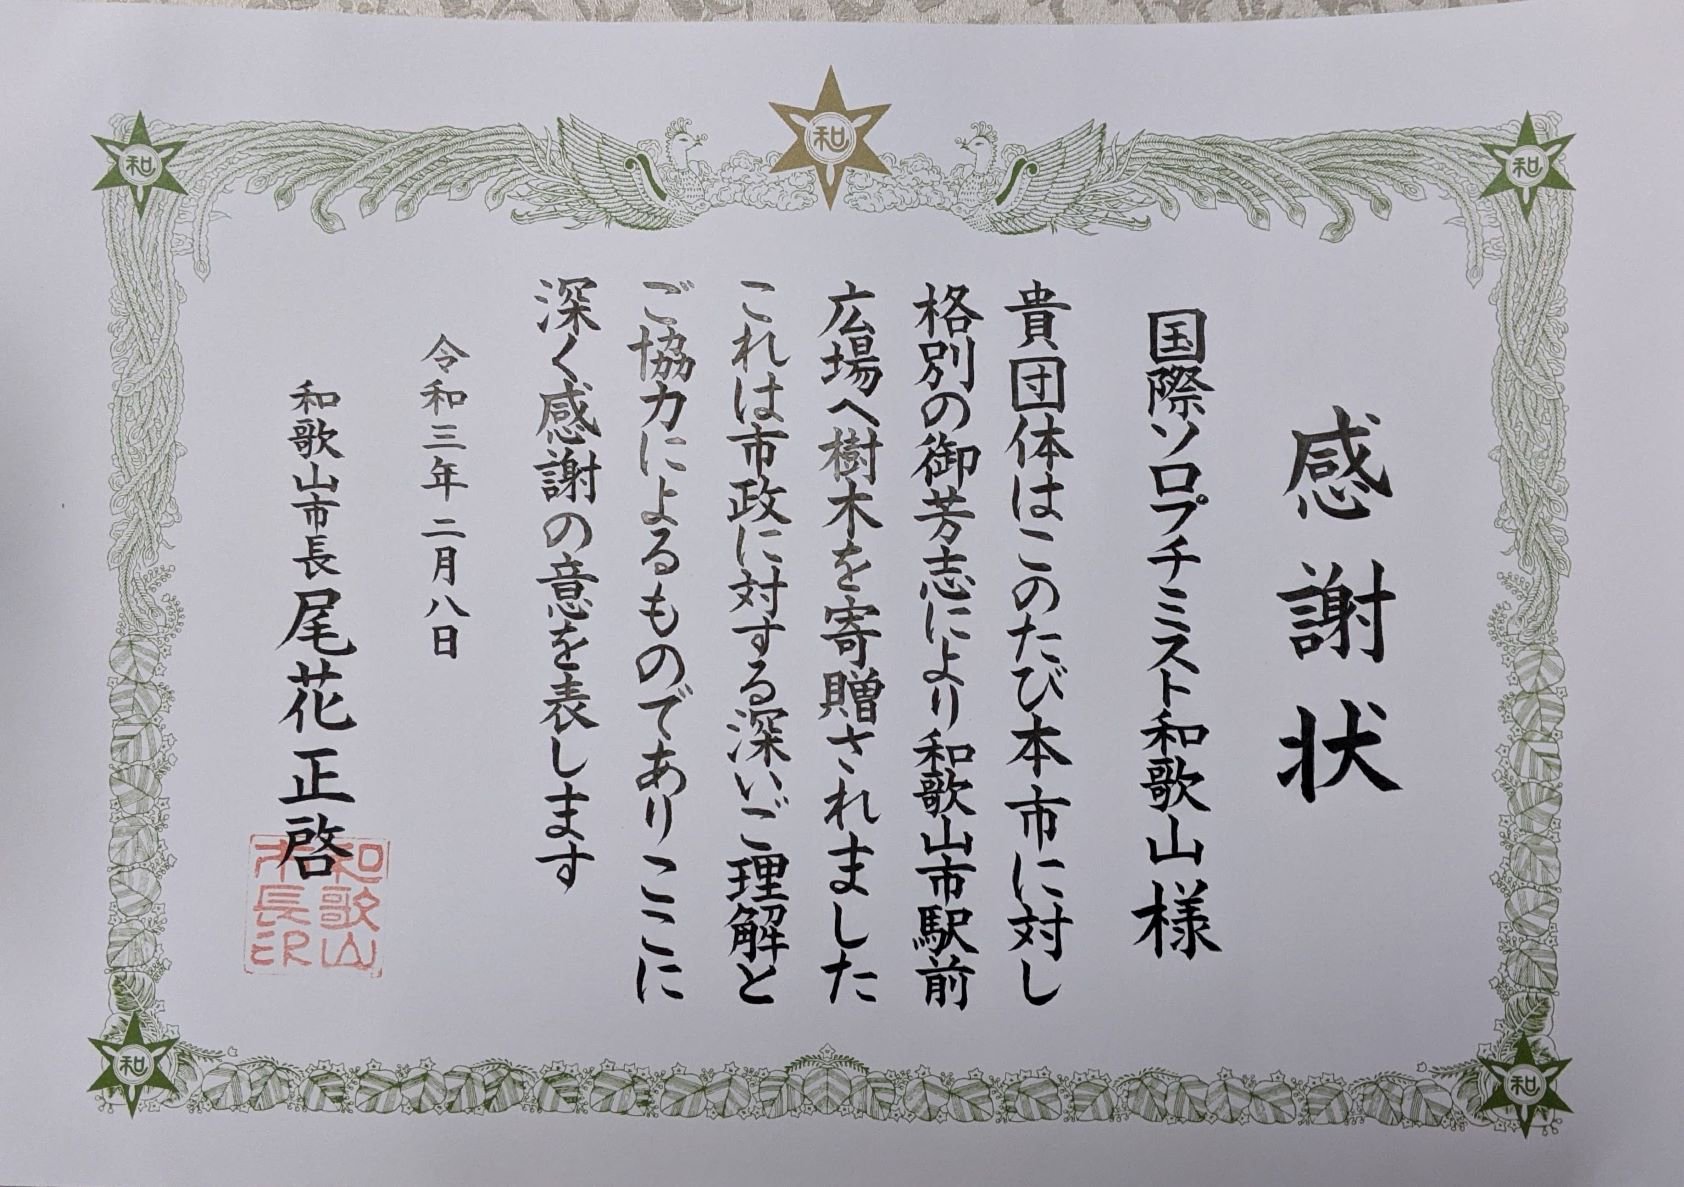 感謝状
国際ソロプチミスト和歌山様
貴団体はこのたび本市に対し
格別の御芳志により和歌山市駅前
広場へ樹木を寄贈されました
これは市政に対する深いご理解と
ご協力によるものでありここに
深く感謝の意を表します
令和三年二月八日
和歌山市長尾花正啓
和歌山
市長印
和
和
和
和
和